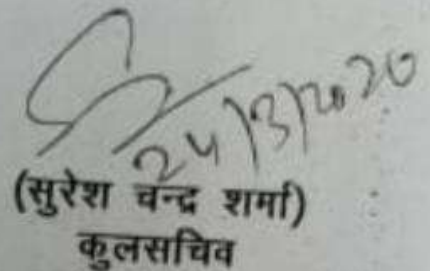 24/3/2020
(सुरेश चन्द्र शर्मा)
कुलसचिव